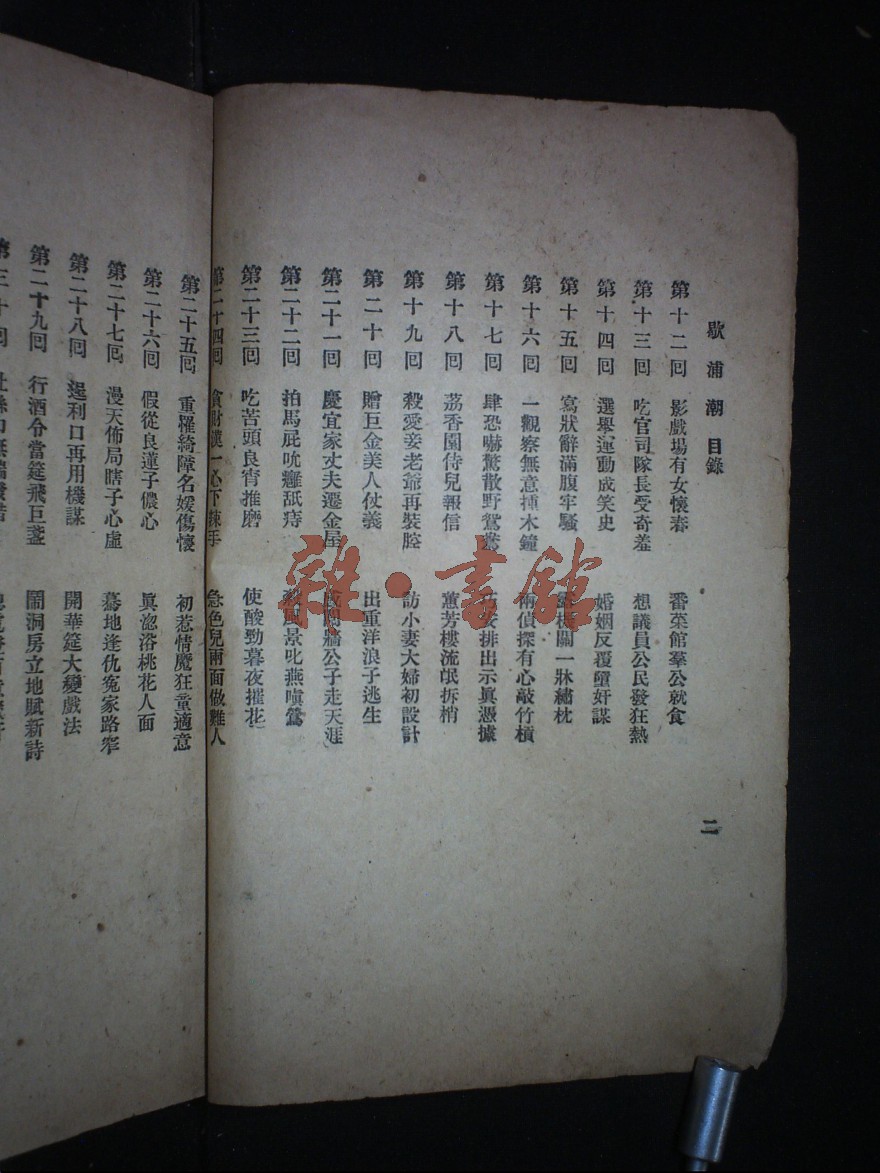 歇浦潮目錄
二
第十二回 影戲場有女懷春 番菜館羣公就食
第十三回 吃官司隊長受奇羞 想議員公民發狂熱
第十四回 選舉運動成笑史 婚姻反覆墮奸謀
第十五回 寫狀辭滿腹牢騷 關一牀繡枕
第十六回 一觀察無意撞木鐘 兩偵探有心敲竹槓
第十七回 肆恐嚇驚散野鴛鴦 排出示眞憑據
第十八回 荔香園侍兒報信 蕙芳樓流氓拆梢
第十九回 殺愛妾老爺再裝腔 訪小妻大婦初設計
第二十回 贈巨金美人仗義 出重洋浪子逃生
第二十一回 慶宜家丈夫遷金屋 牆公子走天涯
第二十二回 拍馬屁吮癰舐痔 風景叱燕嗔鶯
第二十三回 吃苦頭良宵推磨 使酸勁暮夜摧花
第二十四回 貪財漢一心下辣手 急色兒兩面做難人
第二十五回 重罹綺障名媛傷懷 初惹情魔狂童適意
第二十六回 假從良蓮子儂心 眞浴桃花人面
第二十七回 漫天佈局瞎子心虛 驀地逢仇冤家路窄
第二十八回 逞利口再用機謀 開華筵大變戲法
第二十九回 行酒令當筵飛巨盞 鬧洞房立地賦新詩
第三十回
雜·書館